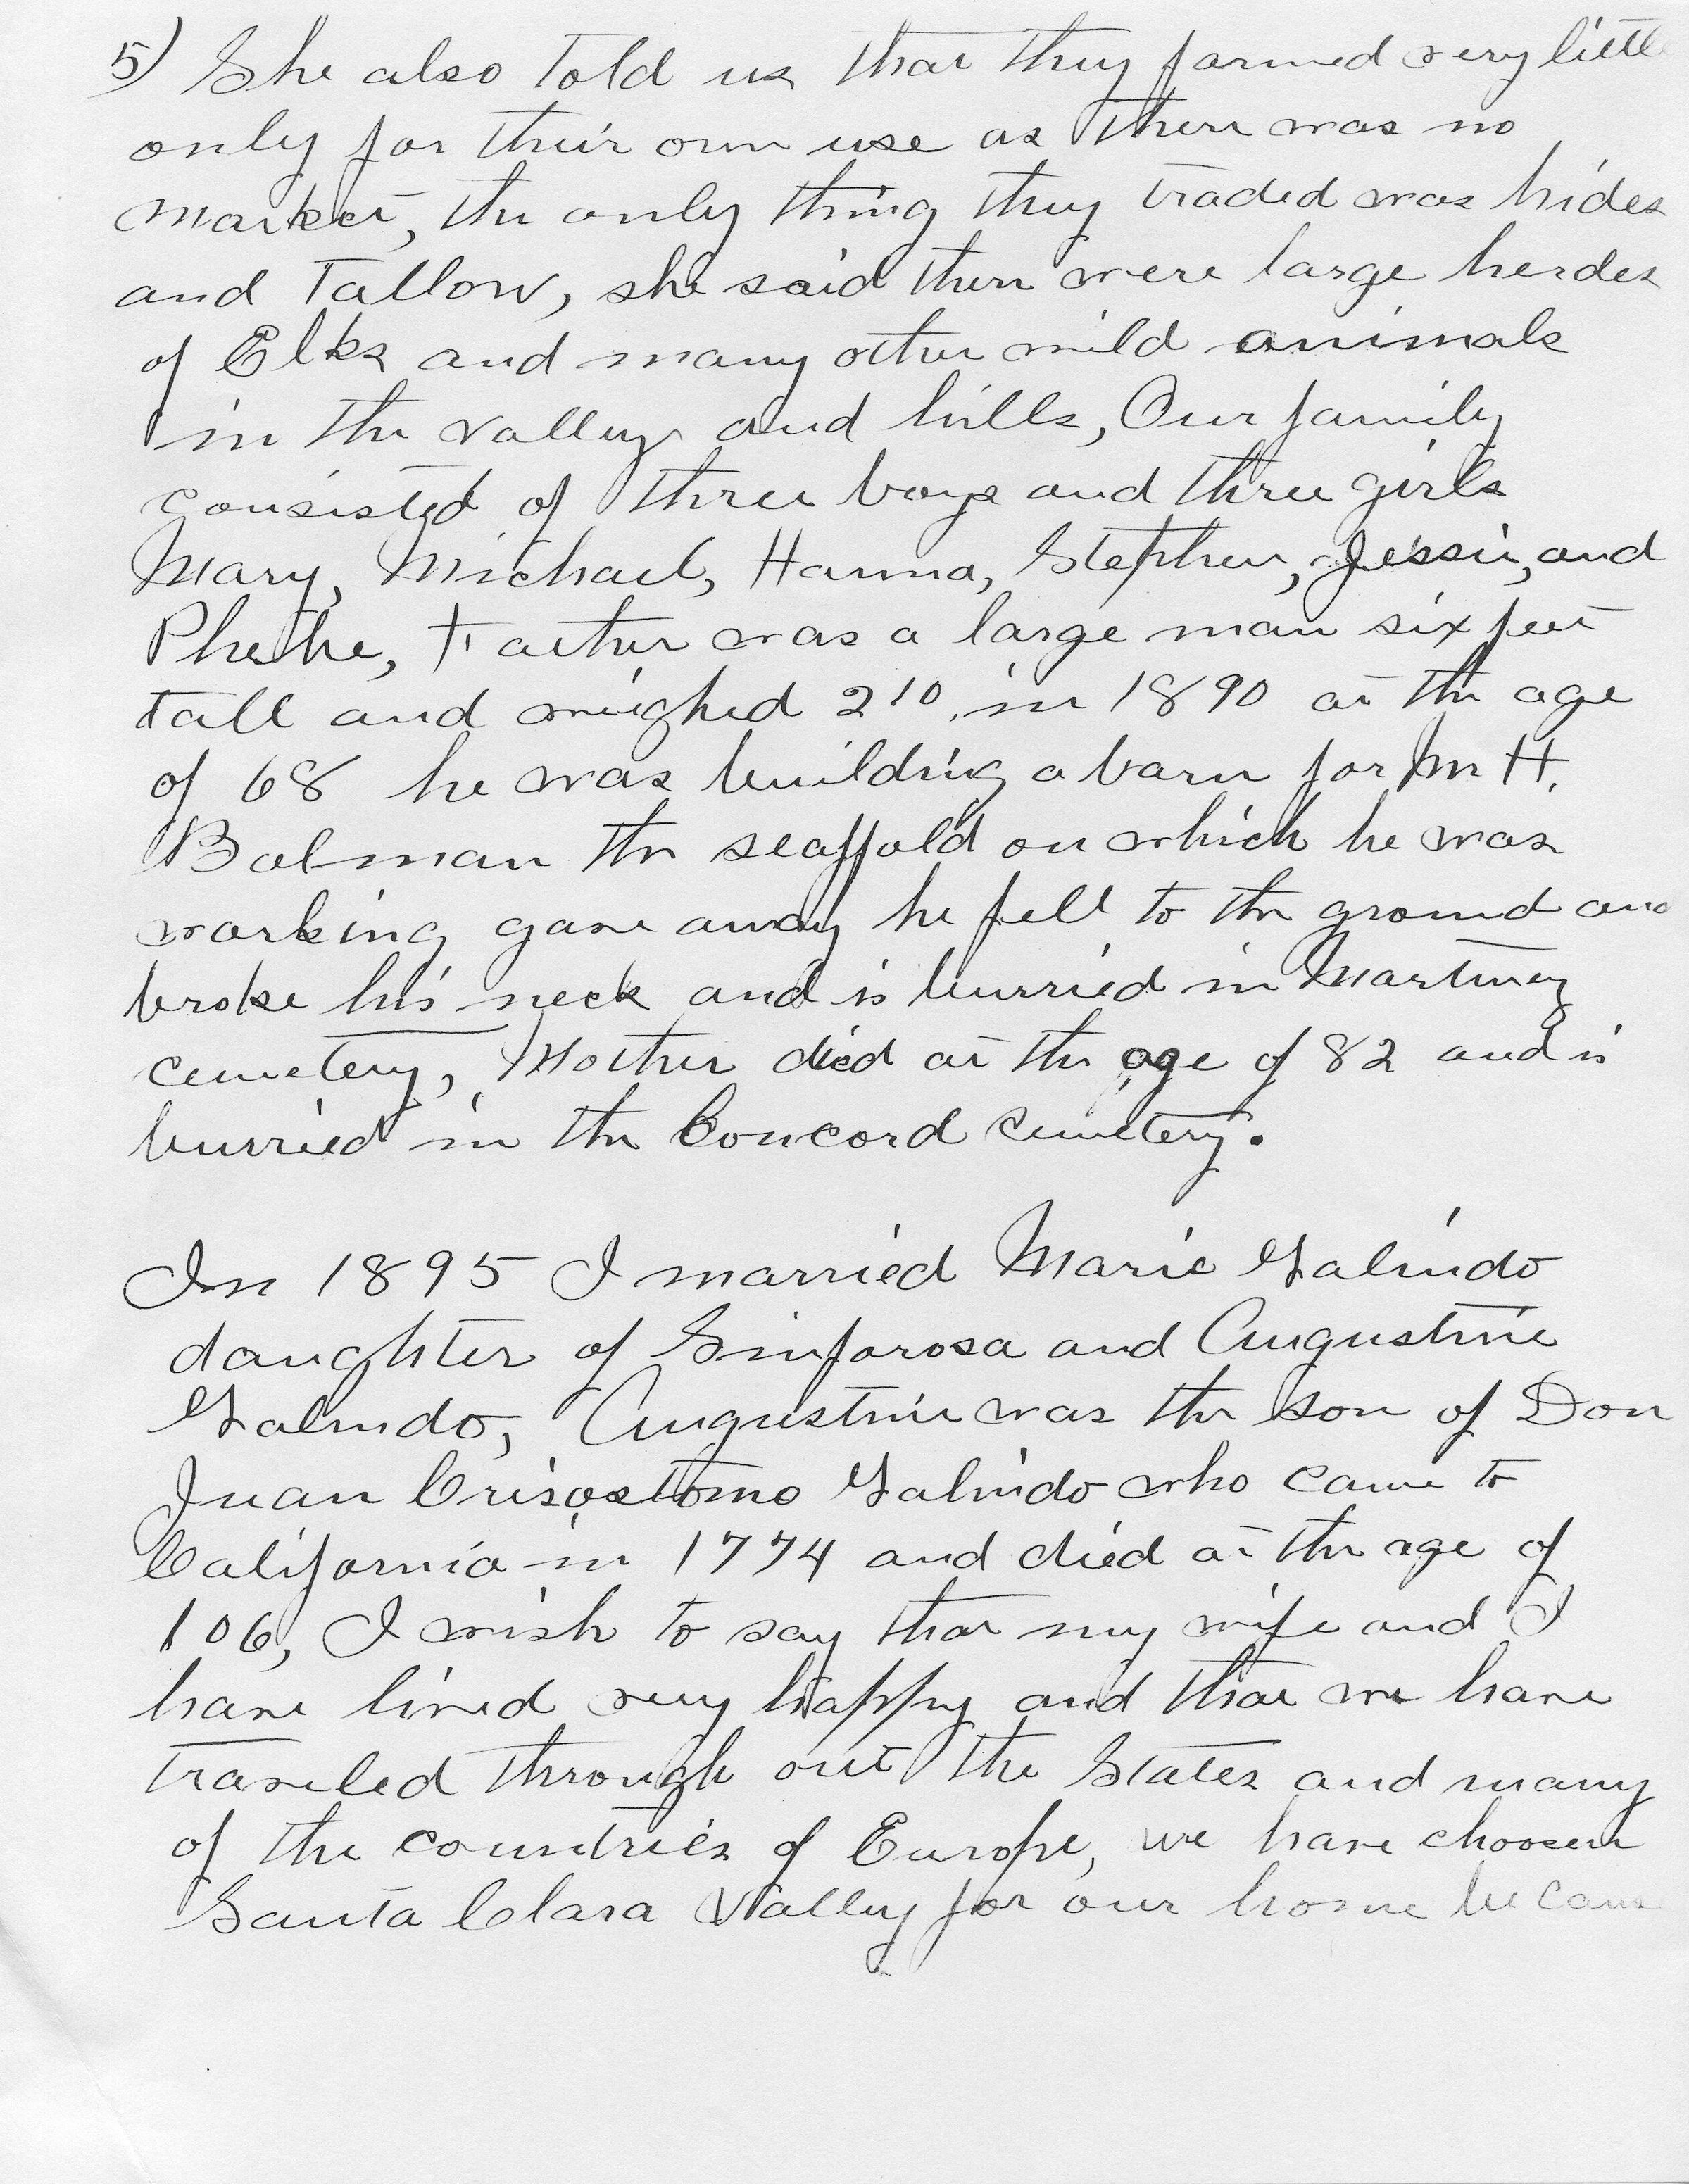 5) She also told us that they farmed very little
only for their own use as there was no
market, the only thing they traded was hides
and Tallow, she said there were large herdes
of Elks and many other wild animals
in the valley and hills, Our family
consisted of three boys and three girls
Mary, Michael, Hanna, Stephen, Jessie, and
Phebe, Father was a large man six feet
tall and weighed 210, in 1890 at the age
of 68 he was building a barn for Wm H.
Bolman the scaffold on which he was
working gave away he fell to the ground and
broke his neck and is burried in Martinez
cemetery, Mother died at the age of 82 and is
burried in the Concord cemetery.
In 1895 I married Marie Galindo
daughter of Sinforosa and Augustine
Galindo, Augustine was the son of Don
Juan Crisostomo Galindo who came to
California in 1774 and died at the age of
106, I wish to say that my wife and I
have lived very happy and that we have
traveled through out the States and many
of the countries of Europe, we have choosen
Santa Clara Valley for our home because